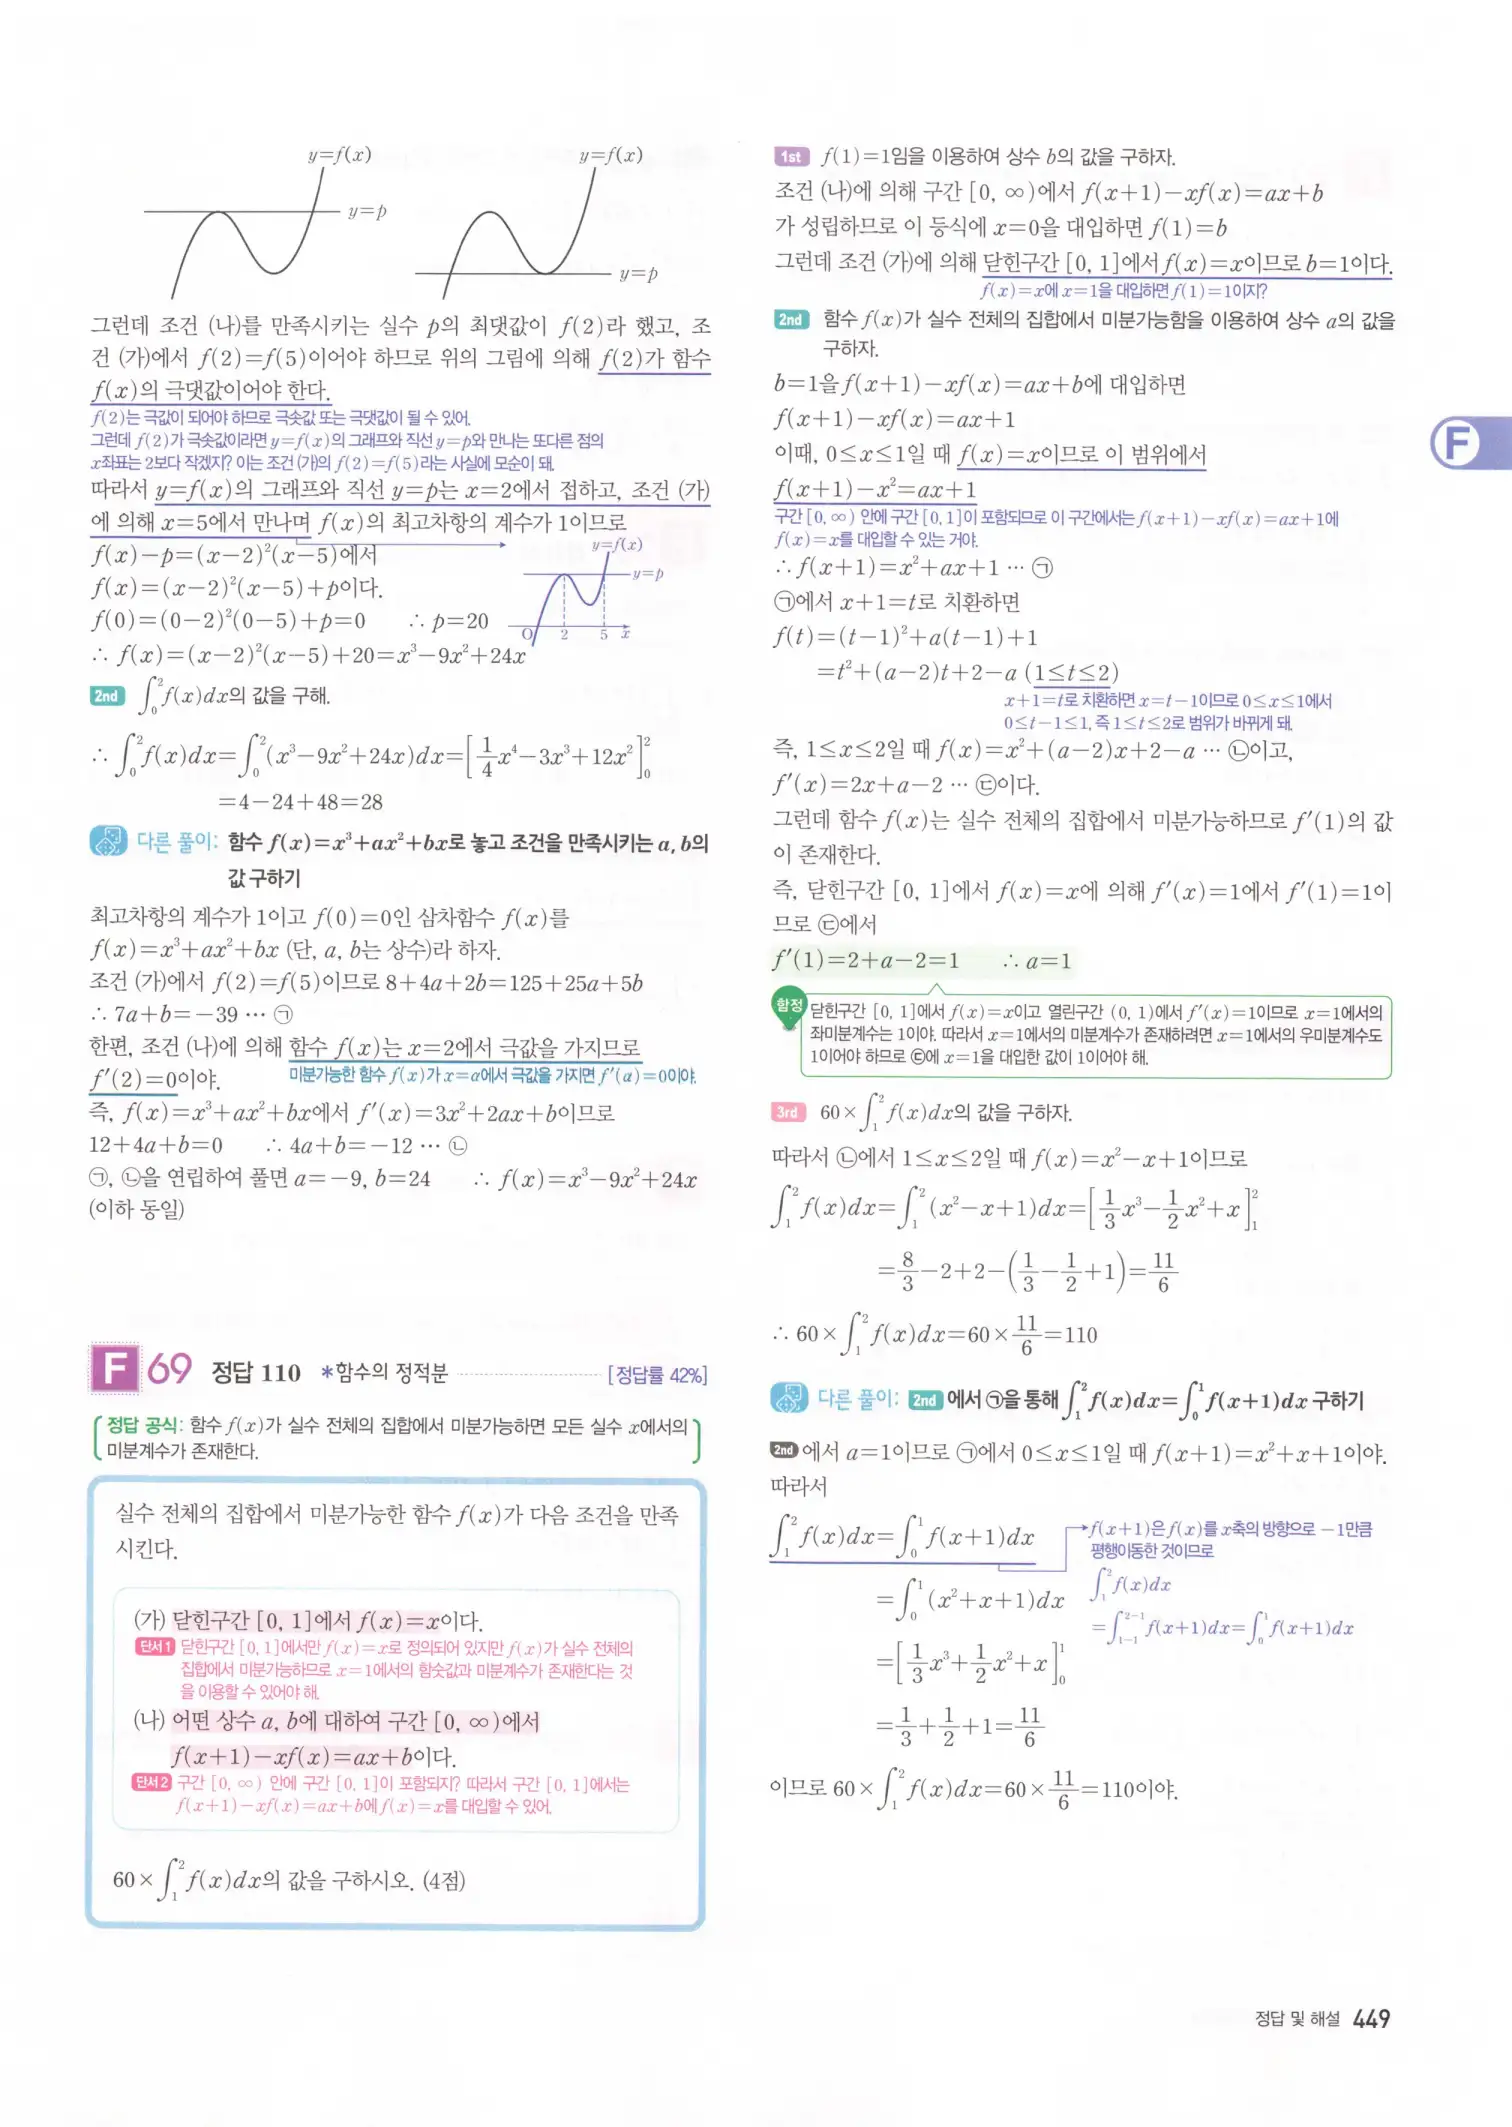 y=f(x)
y=p
y=f(x)
y=p
그런데 조건 (나)를 만족시키는 실수 p의 최댓값이 f(2)라 했고, 조
건 (가)에서 f(2)=f(5)이어야 하므로 위의 그림에 의해 f(2)가 함수
f(x)의 극댓값이어야 한다.
f(2)는 극값이 되어야 하므로 극솟값 또는 극댓값이 될 수 있어.
그런데 f(2)가 극솟값이라면 y=f(x)의 그래프와 직선 y=p와 만나는 또다른 점의
x좌표는 2보다 작겠지? 이는 조건 (가)의 f(2)=f(5)라는 사실에 모순이 돼.
따라서 y=f(x)의 그래프와 직선 y=p는 x=2에서 접하고, 조건 (가)
에 의해 x=5에서 만나며 f(x)의 최고차항의 계수가 1이므로
f(x)-p=(x-2)²(x-5)에서
f(x)=(x-2)²(x-5)+p이다.
f(0)=(0-2)²(0-5)+p=0 ∴ p=20
∴ f(x)=(x-2)²(x-5)+20=x³-9x²+24x
y=f(x)
y=p
O 2 5 x
2nd ∫₀²f(x)dx의 값을 구해.
∴ ∫₀²f(x)dx=∫₀²(x³-9x²+24x)dx=[1/4x⁴-3x³+12x²]₀²
=4-24+48=28
다른 풀이: 함수 f(x)=x³+ax²+bx로 놓고 조건을 만족시키는 a, b의
값 구하기
최고차항의 계수가 1이고 f(0)=0인 삼차함수 f(x)를
f(x)=x³+ax²+bx (단, a, b는 상수)라 하자.
조건 (가)에서 f(2)=f(5)이므로 8+4a+2b=125+25a+5b
∴ 7a+b=-39 … ㉠
한편, 조건 (나)에 의해 함수 f(x)는 x=2에서 극값을 가지므로
f'(2)=0이야. 미분가능한 함수 f(x)가 x=a에서 극값을 가지면 f'(a)=0이야.
즉, f(x)=x³+ax²+bx에서 f'(x)=3x²+2ax+b이므로
12+4a+b=0 ∴ 4a+b=-12 … ㉡
㉠, ㉡을 연립하여 풀면 a=-9, b=24 ∴ f(x)=x³-9x²+24x
(이하 동일)
F 69 정답 110 *함수의 정적분 [정답률 42%]
정답 공식: 함수 f(x)가 실수 전체의 집합에서 미분가능하면 모든 실수 x에서의
미분계수가 존재한다.
실수 전체의 집합에서 미분가능한 함수 f(x)가 다음 조건을 만족
시킨다.
(가) 닫힌구간 [0, 1]에서 f(x)=x이다.
단서1 닫힌구간 [0, 1]에서만 f(x)=x로 정의되어 있지만 f(x)가 실수 전체의
집합에서 미분가능하므로 x=1에서의 함숫값과 미분계수가 존재한다는 것
을 이용할 수 있어야 해.
(나) 어떤 상수 a, b에 대하여 구간 [0, ∞)에서
f(x+1)-xf(x)=ax+b이다.
단서2 구간 [0, ∞) 안에 구간 [0, 1]이 포함되지? 따라서 구간 [0, 1]에서는
f(x+1)-xf(x)=ax+b에 f(x)=x를 대입할 수 있어.
60×∫₁²f(x)dx의 값을 구하시오. (4점)
1st f(1)=1임을 이용하여 상수 b의 값을 구하자.
조건 (나)에 의해 구간 [0, ∞)에서 f(x+1)-xf(x)=ax+b
가 성립하므로 이 등식에 x=0을 대입하면 f(1)=b
그런데 조건 (가)에 의해 닫힌구간 [0, 1]에서 f(x)=x이므로 b=1이다.
f(x)=x에 x=1을 대입하면 f(1)=1이지?
2nd 함수 f(x)가 실수 전체의 집합에서 미분가능함을 이용하여 상수 a의 값을
구하자.
b=1을 f(x+1)-xf(x)=ax+b에 대입하면
f(x+1)-xf(x)=ax+1
이때, 0≤x≤1일 때 f(x)=x이므로 이 범위에서
f(x+1)-x²=ax+1
구간 [0, ∞) 안에 구간 [0, 1]이 포함되므로 이 구간에서는 f(x+1)-xf(x)=ax+1에
f(x)=x를 대입할 수 있는 거야.
∴ f(x+1)=x²+ax+1 … ㉠
㉠에서 x+1=t로 치환하면
f(t)=(t-1)²+a(t-1)+1
=t²+(a-2)t+2-a (1≤t≤2)
x+1=t로 치환하면 x=t-1이므로 0≤x≤1에서
0≤t-1≤1, 즉 1≤t≤2로 범위가 바뀌게 돼.
즉, 1≤x≤2일 때 f(x)=x²+(a-2)x+2-a … ㉡이고,
f'(x)=2x+a-2 … ㉢이다.
그런데 함수 f(x)는 실수 전체의 집합에서 미분가능하므로 f'(1)의 값
이 존재한다.
즉, 닫힌구간 [0, 1]에서 f(x)=x에 의해 f'(x)=1에서 f'(1)=1이
므로 ㉢에서
f'(1)=2+a-2=1 ∴ a=1
함정 닫힌구간 [0, 1]에서 f(x)=x이고 열린구간 (0, 1)에서 f'(x)=1이므로 x=1에서의
좌미분계수는 1이야. 따라서 x=1에서의 미분계수가 존재하려면 x=1에서의 우미분계수도
1이어야 하므로 ㉢에 x=1을 대입한 값이 1이어야 해.
3rd 60×∫₁²f(x)dx의 값을 구하자.
따라서 ㉡에서 1≤x≤2일 때 f(x)=x²-x+1이므로
∫₁²f(x)dx=∫₁²(x²-x+1)dx=[1/3x³-1/2x²+x]₁²
=8/3-2+2-(1/3-1/2+1)=11/6
∴ 60×∫₁²f(x)dx=60×11/6=110
다른 풀이: 2nd 에서 ㉠을 통해 ∫₁²f(x)dx=∫₀¹f(x+1)dx 구하기
2nd 에서 a=1이므로 ㉠에서 0≤x≤1일 때 f(x+1)=x²+x+1이야.
따라서
∫₁²f(x)dx=∫₀¹f(x+1)dx
=∫₀¹(x²+x+1)dx
=[1/3x³+1/2x²+x]₀¹
=1/3+1/2+1=11/6
f(x+1)은 f(x)를 x축의 방향으로 -1만큼
평행이동한 것이므로
∫₁²f(x)dx
=∫₁₋₁²⁻¹f(x+1)dx=∫₀¹f(x+1)dx
이므로 60×∫₁²f(x)dx=60×11/6=110이야.
F
정답 및 해설 449